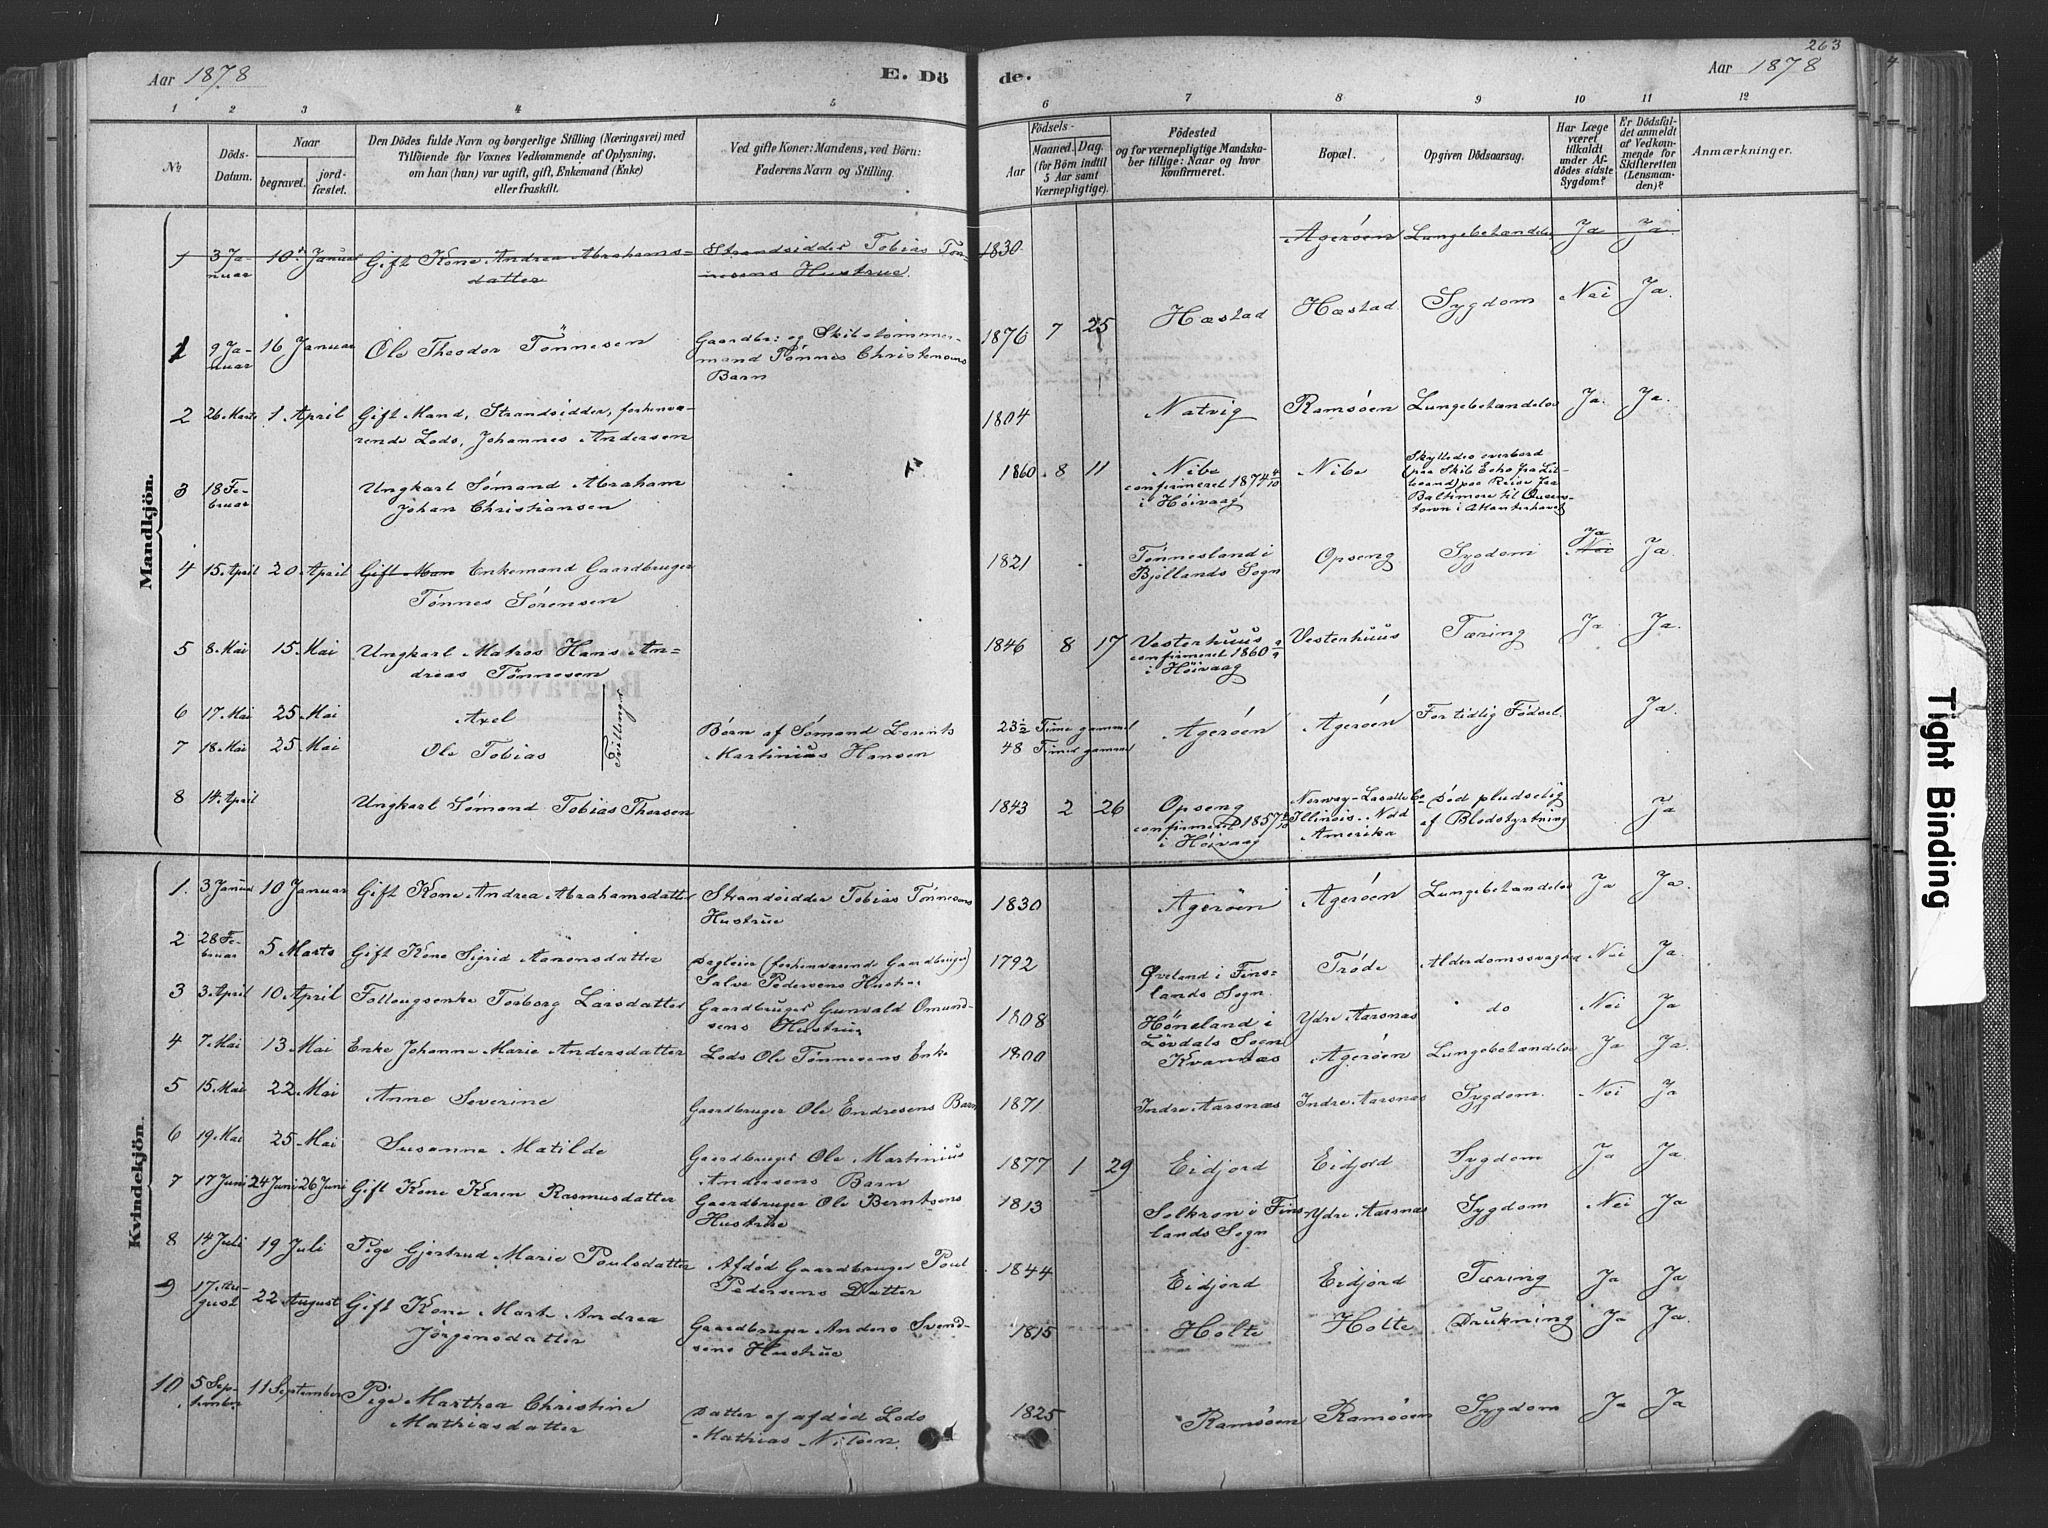 263
Aar 1878
E. Dö
de.
Aar 1878
1 2 3 4 5 6 7 8 9 10 11 12
No
Döds-Datum.
Naar
begravet.
jord-fæstet.
Den Dödes fulde Navn og borgerlige Stilling (Næringsvei) med
Tilföiende for Voxnes Vedkommende af Oplysning,
om han (hun) var ugift, gift, Enkemand (Enke)
eller fraskilt.
Ved gifte Koner: Mandens, ved Börn:
Faderens Navn og Stilling.
Födsels-
Aar
Maaned. Dag.
(for Börn indtil
5 Aar samt
Værnepligtige).
Födested
og for værnepligtige Mandska-
ber tillige: Naar og hvor
konfirmeret.
Bopæl.
Opgiven Dödsaarsag.
Har Læge
været
tilkaldt
under Af-
dödes sidste
Sygdom?
Er Dödsfal-
det anmeldt
af Vedkom-
mende for
Skifteretten
(Lensman-
den)?
Anmærkninger.
Mandkjön.
1 3 Januar 10 Januar Gift Kone Andrea Abrahams-
datter
Strandsidder Tobias Tön-
nesens Hustrue.
1830 Agerøen Lungebetændelse Ja Ja.
1 9 Januar 16 Januar Ole Theodor Tönnesen
Gaardbr: og Skibstømmer-
mand Tønnes Christensens
Barn
1876 7 25 Hæstad Hæstad Sygdom Nei Ja.
2 26 Marts 1 April Gift Mand, Strandsidder, forhenvæ-
rende Lods, Johannes Andersen
1804 Natvig Ramsøen Lungebetændelse Ja. Ja.
3 18 Februar Ungkarl Sømand Abraham
Johan Christiansen
1860 8 11 Nibe
confirmeret 1874 4/10
i Høivaag
Nibe
Skylledes overbord
(paa Skib Echo fra Lil-
lesand) paa Reise fra
Baltimore til Queens-
town i Atlanterhavet
4 15 April 20 April Gift Man Enkemand Gaardbruger
Tønnes Sørensen
1821 Tønnesland i
Bjellands Sogn
Opseng Sygdom Ja Nei Ja.
5 8 Mai 15 Mai Ungkarl Matros Hans An-
dreas Tønnesen
1846 8 17 Vesterhuus
confirmeret 1860
i Høivaag
Vesterhuus Tæring Ja Ja.
6 17 Mai 25 Mai Axel
7 18 Mai 25 Mai Ole Tobias
Tvillinger
Børn af Sømand Lorents
Martinius Hansen
23½ Time gammel
48 Timer gammel
Agerøen Agerøen For tidlig Fødsel. Ja.
8 14 April Ungkarl Sømand Tobias Thorsen
1843 2 26 Opseng
confirmeret 1857
i Høivaag
Norway-Lasalle Co-
Illinois. Nord
Amerika
Død pludselig
af Blodstyrtning
Ja
Kvindekjön.
1. 3 Januar 10 Januar Gift Kone Andrea Abrahamsdatter
Strandsidder Tobias Tønnesens
Hustrue
1830 Agerøen Agerøen Lungebetændelse Ja Ja.
2 28 Februar 5 Marts Gift Kone Sigrid Aanonsdatter
Dagleier (forhenværende Gaardbruger)
Salve Pedersens Hustru
1792 Øveland i Fins-
lands Sogn.
Trøde Alderdomssvaghed Nei Ja.
3 3 April 10 April Follougsenke Torborg Larsdatter
Gaardbruger Gunvald Omund-
sens Hustrue
1808 Høneland i
Løvdals Sogn
Ydre Aarsnæs do Nei Ja
4 7 Mai 13 Mai Enke Johanne Marie Andersdatter
Lods Ole Tønnesens Enke
1800 Kvannæs Agerøen Lungebetændelse Ja Ja.
5 15 Mai 22 Mai Anne Severine
Gaardbruger Ole Endresens Barn
1871 Indre Aarsnæs Indre Aarsnæs Sygdom. Nei Ja
6 19 Mai 25 Mai Susanne Matilde
Gaardbruger Ole Martinius
Andersens Barn
1877 1 29 Eidjord Eidjord Sygdom Ja Ja.
7 17 Juni 24 Juni 26 Juni Gift Kone Karen Rasmusdatter
Gaardbruger Ole Berntsens
Hustrue
1813 Solkron i Fins-
lands Sogn
Ydre Aarsnæs Sygdom Nei Ja
8 14 Juli 19 Juli Pige Gjertrud Marie Poulsdatter
Afdød Gaardbruger Poul
Pedersens Datter
1844 Eidjord Eidjord Tæring Ja Ja
9 17 August 22 August Gift Kone Marte Andrea
Jörgensdatter
Gaardbruger Anders Svend-
sens Hustrue
1815 Holte Holte Drukning Ja Ja.
10 5 September 11 September Pige Marthea Christine
Mathiasdatter
Datter af afdød Lods
Mathias Nilsen.
1825 Ramsøen Ramsøen Sygdom Ja Ja
Tight Binding